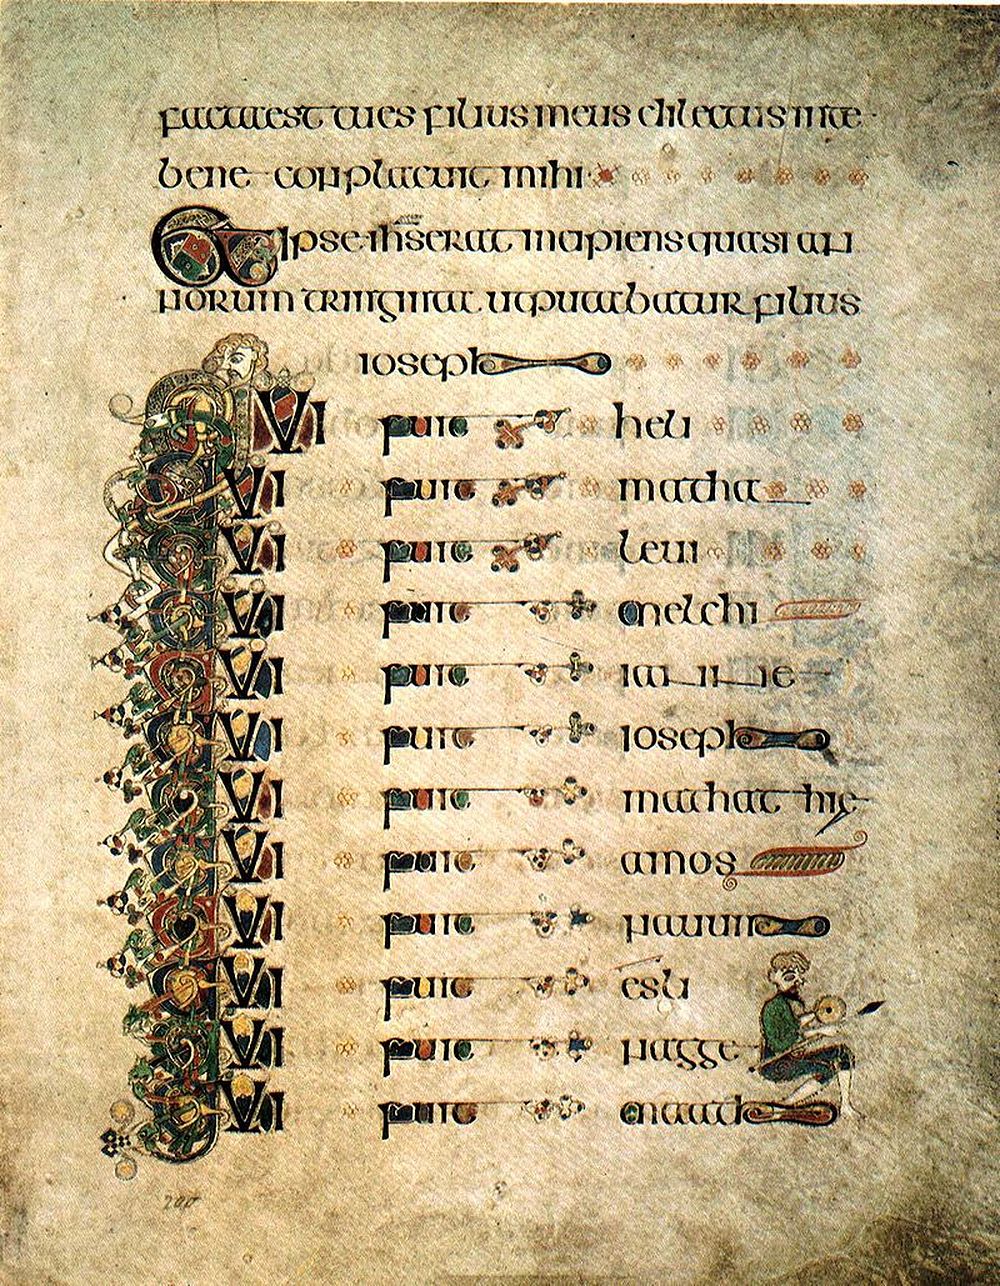 facta est tu es filius meus dilectus in te
bene conplacuit mihi
Et ipse ihs erat incipiens quasi an
norum tringinta ut putabatur filius
ioseph
QVI fuit heli
QVI fuit matha
QVI fuit leui
QVI fuit melchi
QVI fuit iannae
QVI fuit ioseph
QVI fuit mathathie
QVI fuit amos
QVI fuit nauum
QVI fuit esli
QVI fuit nagge
QVI fuit maath
200